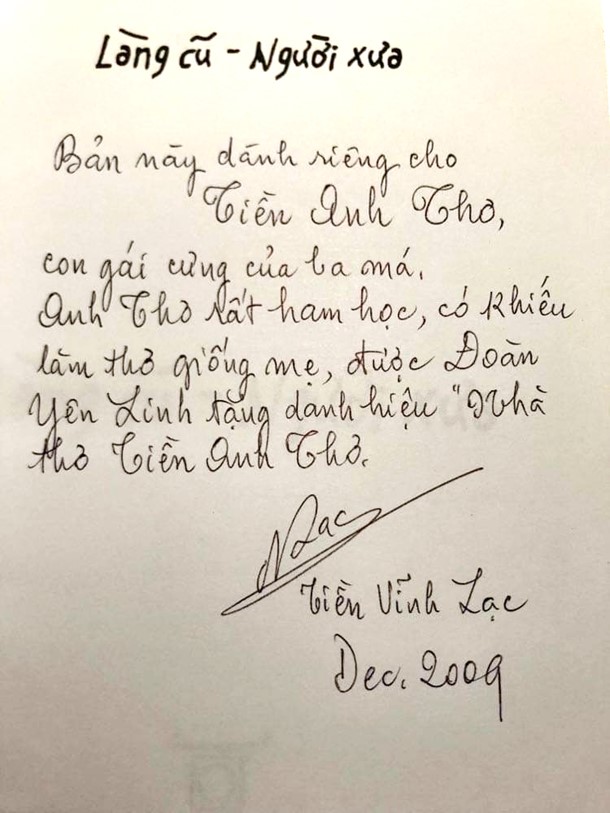 Làng cũ - Người xưa
Bản này dánh riêng cho
Tiền Anh Thơ,
con gái cưng của ba má.
Anh Thơ rất ham học, có khiếu
làm thơ giống mẹ, được Đoàn
Yên Linh tặng danh hiệu "Nhà
thơ Tiền Anh Thơ.
NLac
Tiền Vĩnh Lạc
Dec. 2009